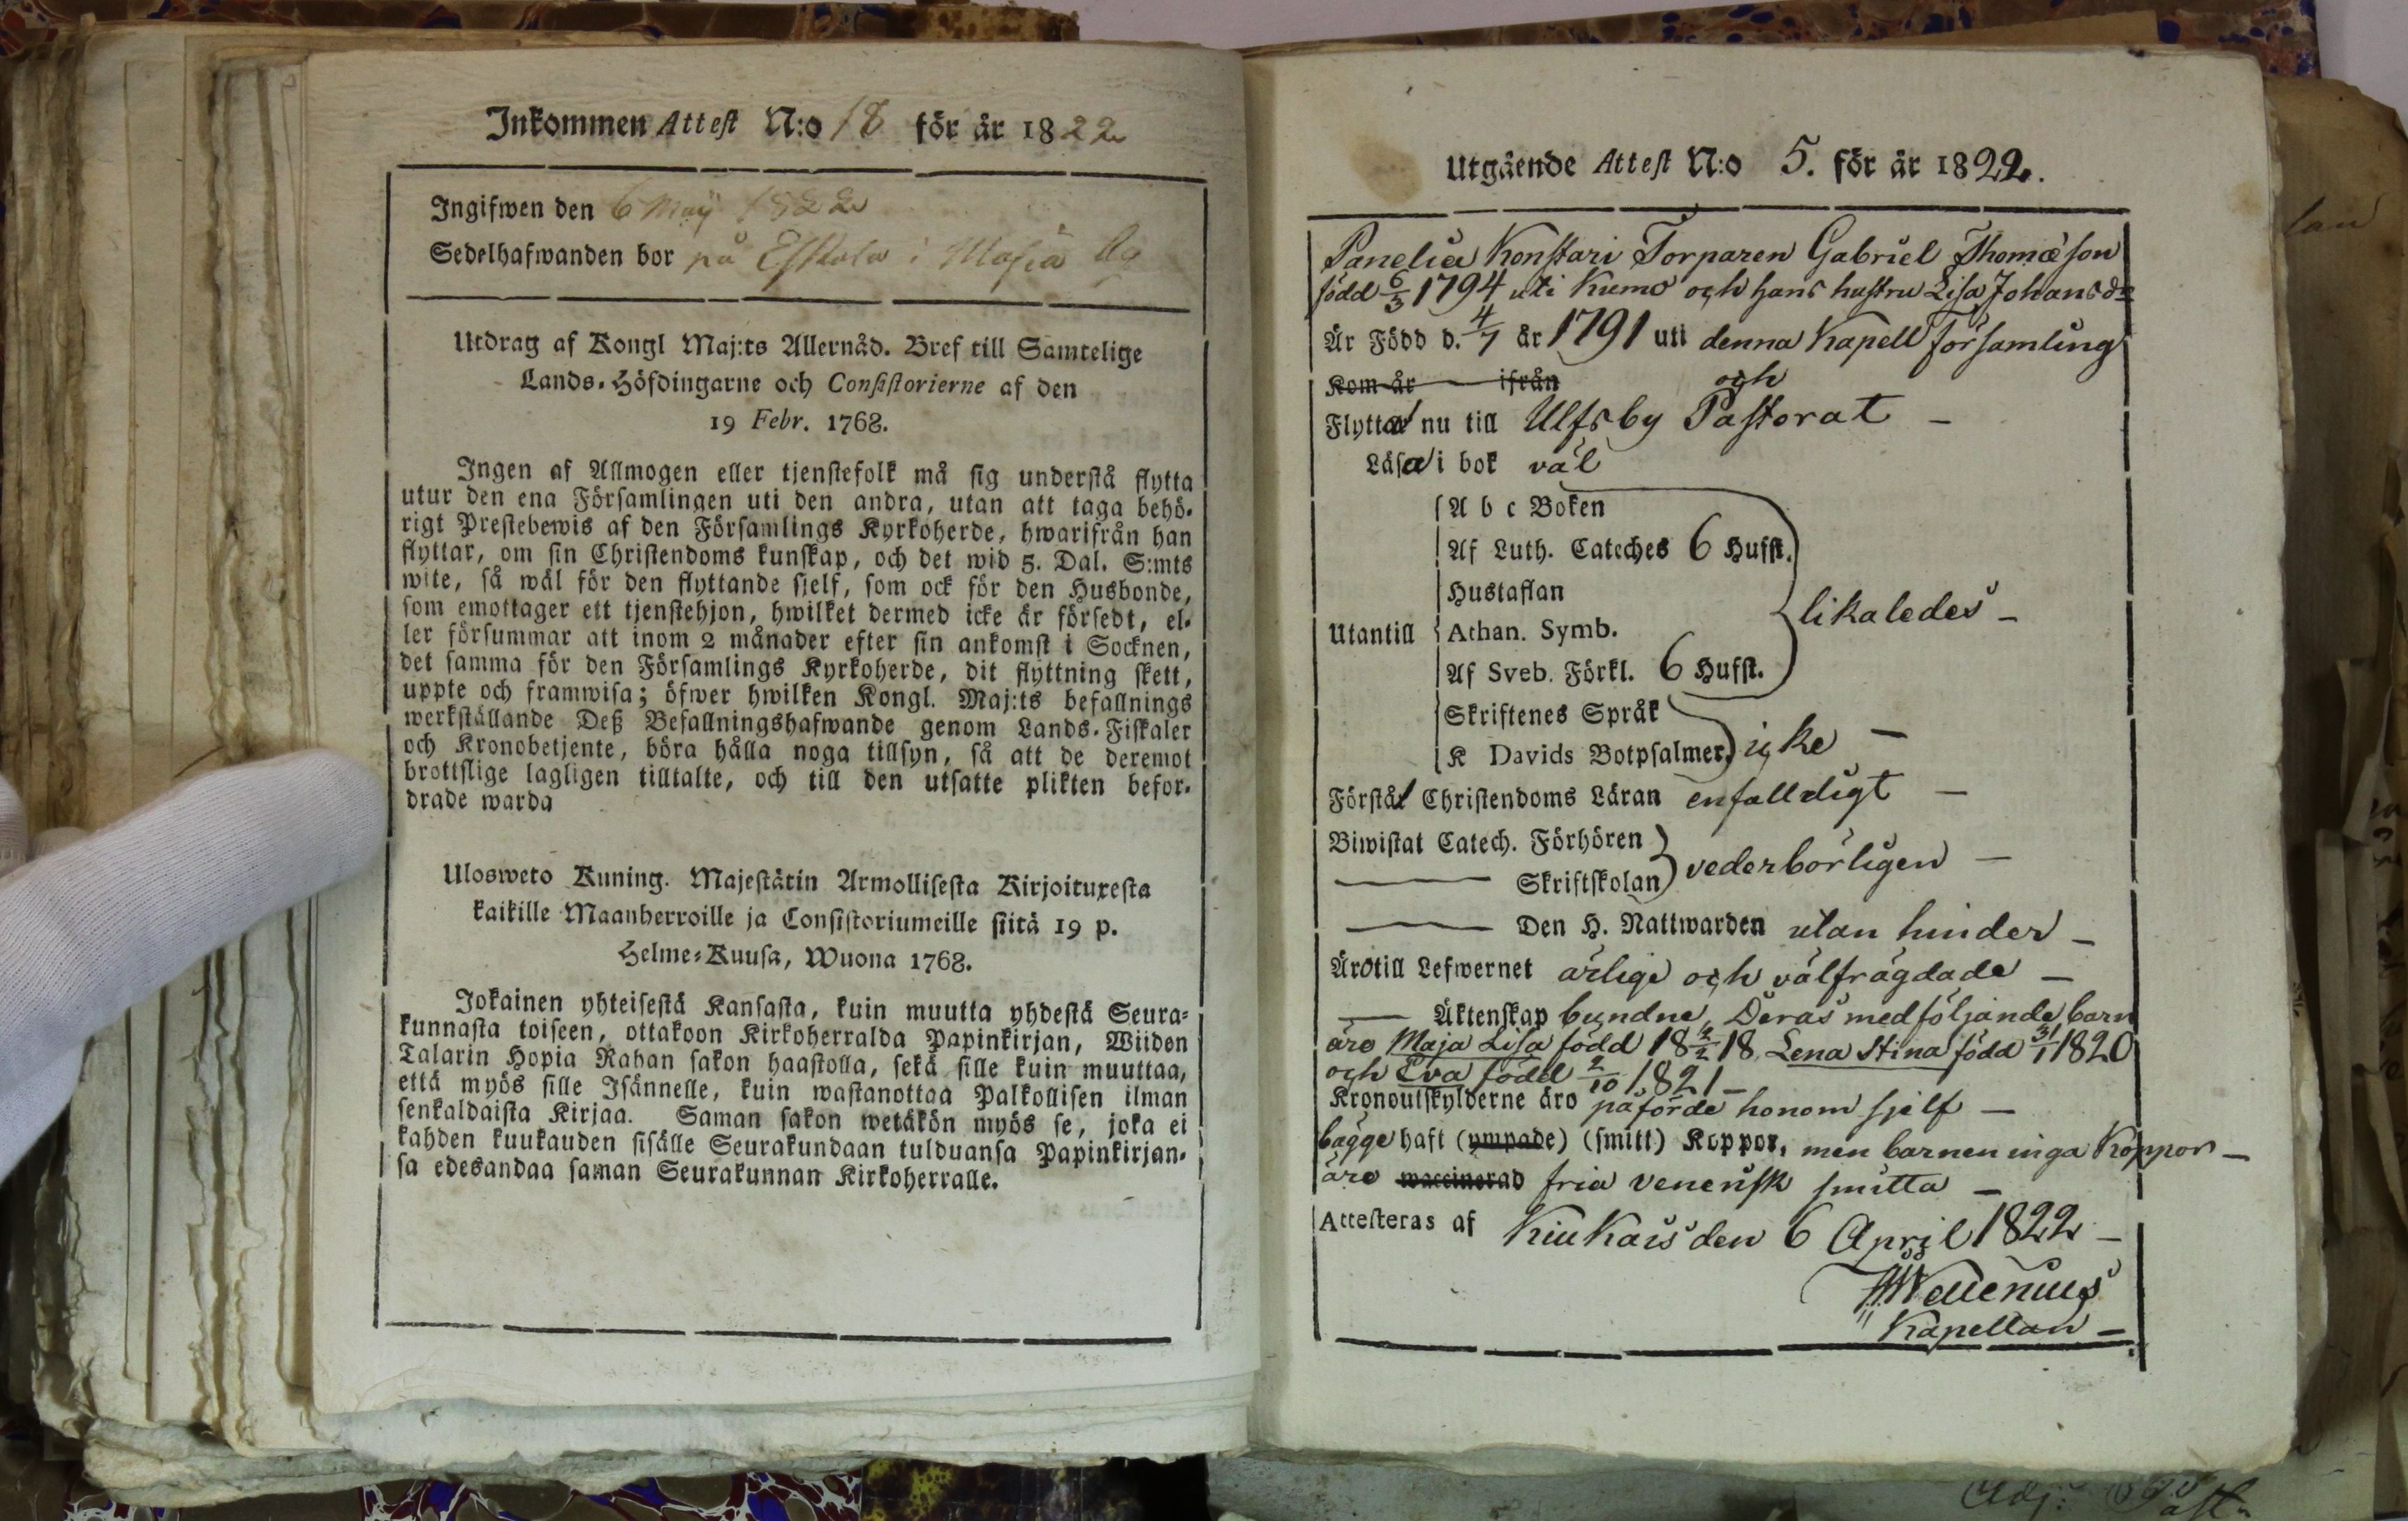 Inkommen Attest N:o 18 för år 1822
Ingifwen den 6 Maij 1822
Sedelhafwanden bor på Eskola i
Utdrag af Kongl Maj:ts Allernåd. Bref till Samtelige
Lands-Höfdingarne och Consistorierne af den
19 Febr. 1768.
Ingen af Allmogen eller tjenstefolk må sig understå flytta
utur den ena Församlingen uti den andra, utan att taga behö-
rigt Prestebewis af den Församlings Kyrkoherde, hwarifrån han
flyttar, om sin Christendoms kunskap, och det wid 5. Dal. S:mts
wite, så wäl för den flyttande sjelf, som ock för den Husbonde,
som emottager ett tjenstehjon, hwilket dermed icke är försedt, el-
ler försummar att inom 2 månader efter sin ankomst i Socknen,
det samma för den Församlings Kyrkoherde, dit flyttning skett,
uppte och framwisa; öfwer hwilken Kongl. Maj:ts befallnings
werkställande Deß Befallningshafwande genom Lands-Fiskaler
och Kronobetjente, böra hålla noga tillsyn, så att de deremot
brottslige lagligen tilltalte, och till den utsatte plikten befor-
drade warda
Ulosweto Kuning. Majestätin Armollisesta Kirjoituxesta
kaikille Maanherroille ja Consistoriumeille siitä 19 p.
Helme-Kuusa, Wuona 1768.
Jokainen yhteisestä Kansasta, kuin muutta yhdestä Seura-
kunnasta toiseen, ottakoon Kirkoherralda Papinkirjan, Wiiden
Talarin Hopia Rahan sakon haastolla, sekä sille kuin muuttaa,
että myös sille Isännelle, kuin wastanottaa Palkollisen ilman
senkaldaista Kirjaa. Saman sakon wetäkön myös se, joka ei
kahden kuukauden sisälle Seurakundaan tulduansa Papinkirjan-
sa edesandaa saman Seurakunnan Kirkoherralle.
Utgående Attest N:o 5. för år 1822.
Panelia Konstari Torparen Gabriel Thomæson
född 6/3 1794 uti Kumo och hans hustru Lisa Johansdr
Är Född d. 4/7 år 1791 uti denna Kapell församling
Kom år ifrån
och
Flytta nu till Ulfsby Pastorat –
Läsa i bok väl
A b c Boken
Af Luth. Cateches 6 Hufst.
Hustaflan
Utantill Athan. Symb. likaledes –
Af Sveb. Förkl. 6 Hufst.
Skriftenes Språk
K Davids Botpsalmer. icke –
Förstå Christendoms Läran enfalldigt –
Biwistat Catech. Förhören
Skriftskolan vederbörligen –
Den H. Nattwarden utan hinder –
Äro till Lefwernet ärlige och välfrägdade –
Äktenskap bundne, Deras medföljande barn
äro Maja Lisa född 18 2/2 18, Lena Stina född 31/1 1820
och Eva född 2/10 1821 –
Kronoutskylderne äro påförde honom sjelf –
bägge haft (ympade) (smitt) Koppor, men barnen inga Koppor –
äro waccinerad fria venerisk smitta –
Attesteras af Kiukais den 6 April 1822 –
Kapellan –